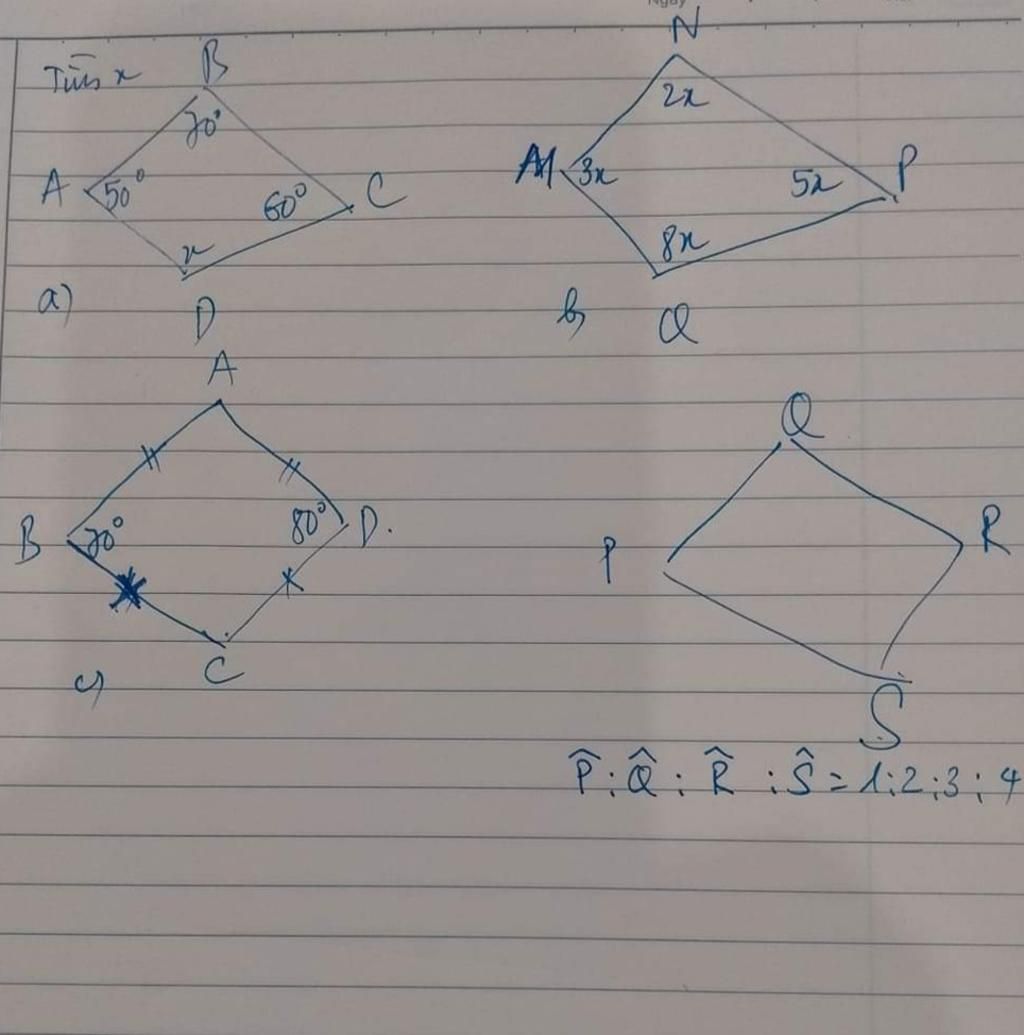 Ngày
Tìm x
B
70°
A
50°
60°
C
x
D
a)
N
2x
M
3x
5x
P
8x
Q
b)
A
B
70°
80°
D.
C
c)
Q
P
R
S
P̂ : Q̂ : R̂ : Ŝ = 1:2:3:4